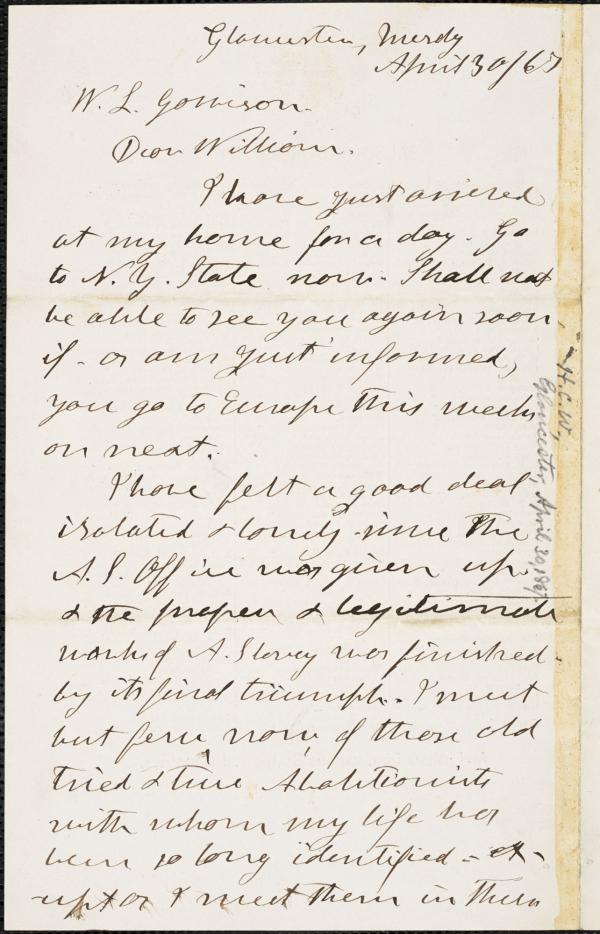 Gloucester, Mersdy
April 30/67
W. L. Garrison.
Dear William.
I have just arrived
at my home for a day. Go
to N. Y. State now. Shall not
be able to see you again soon,
if - as am just informed,
you go to Europe this week
or next.
I have felt a good deal
isolated & lonely since the
A. S. Office was given up
& the proper & legitimate
work of A. Slavery was finished -
by its final triumph. I meet
but few now, of those old
tried & true Abolitionists
with whom my life has
been so long identified - ex-
-cept as I meet them in their
H. C. W.,
Gloucester, April 30, 1867